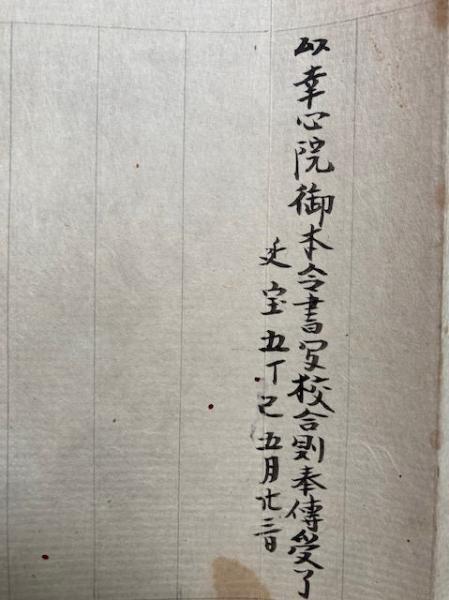 以幸心院御本令書写校合則奉傳受了
延宝五丁巳五月廿三日